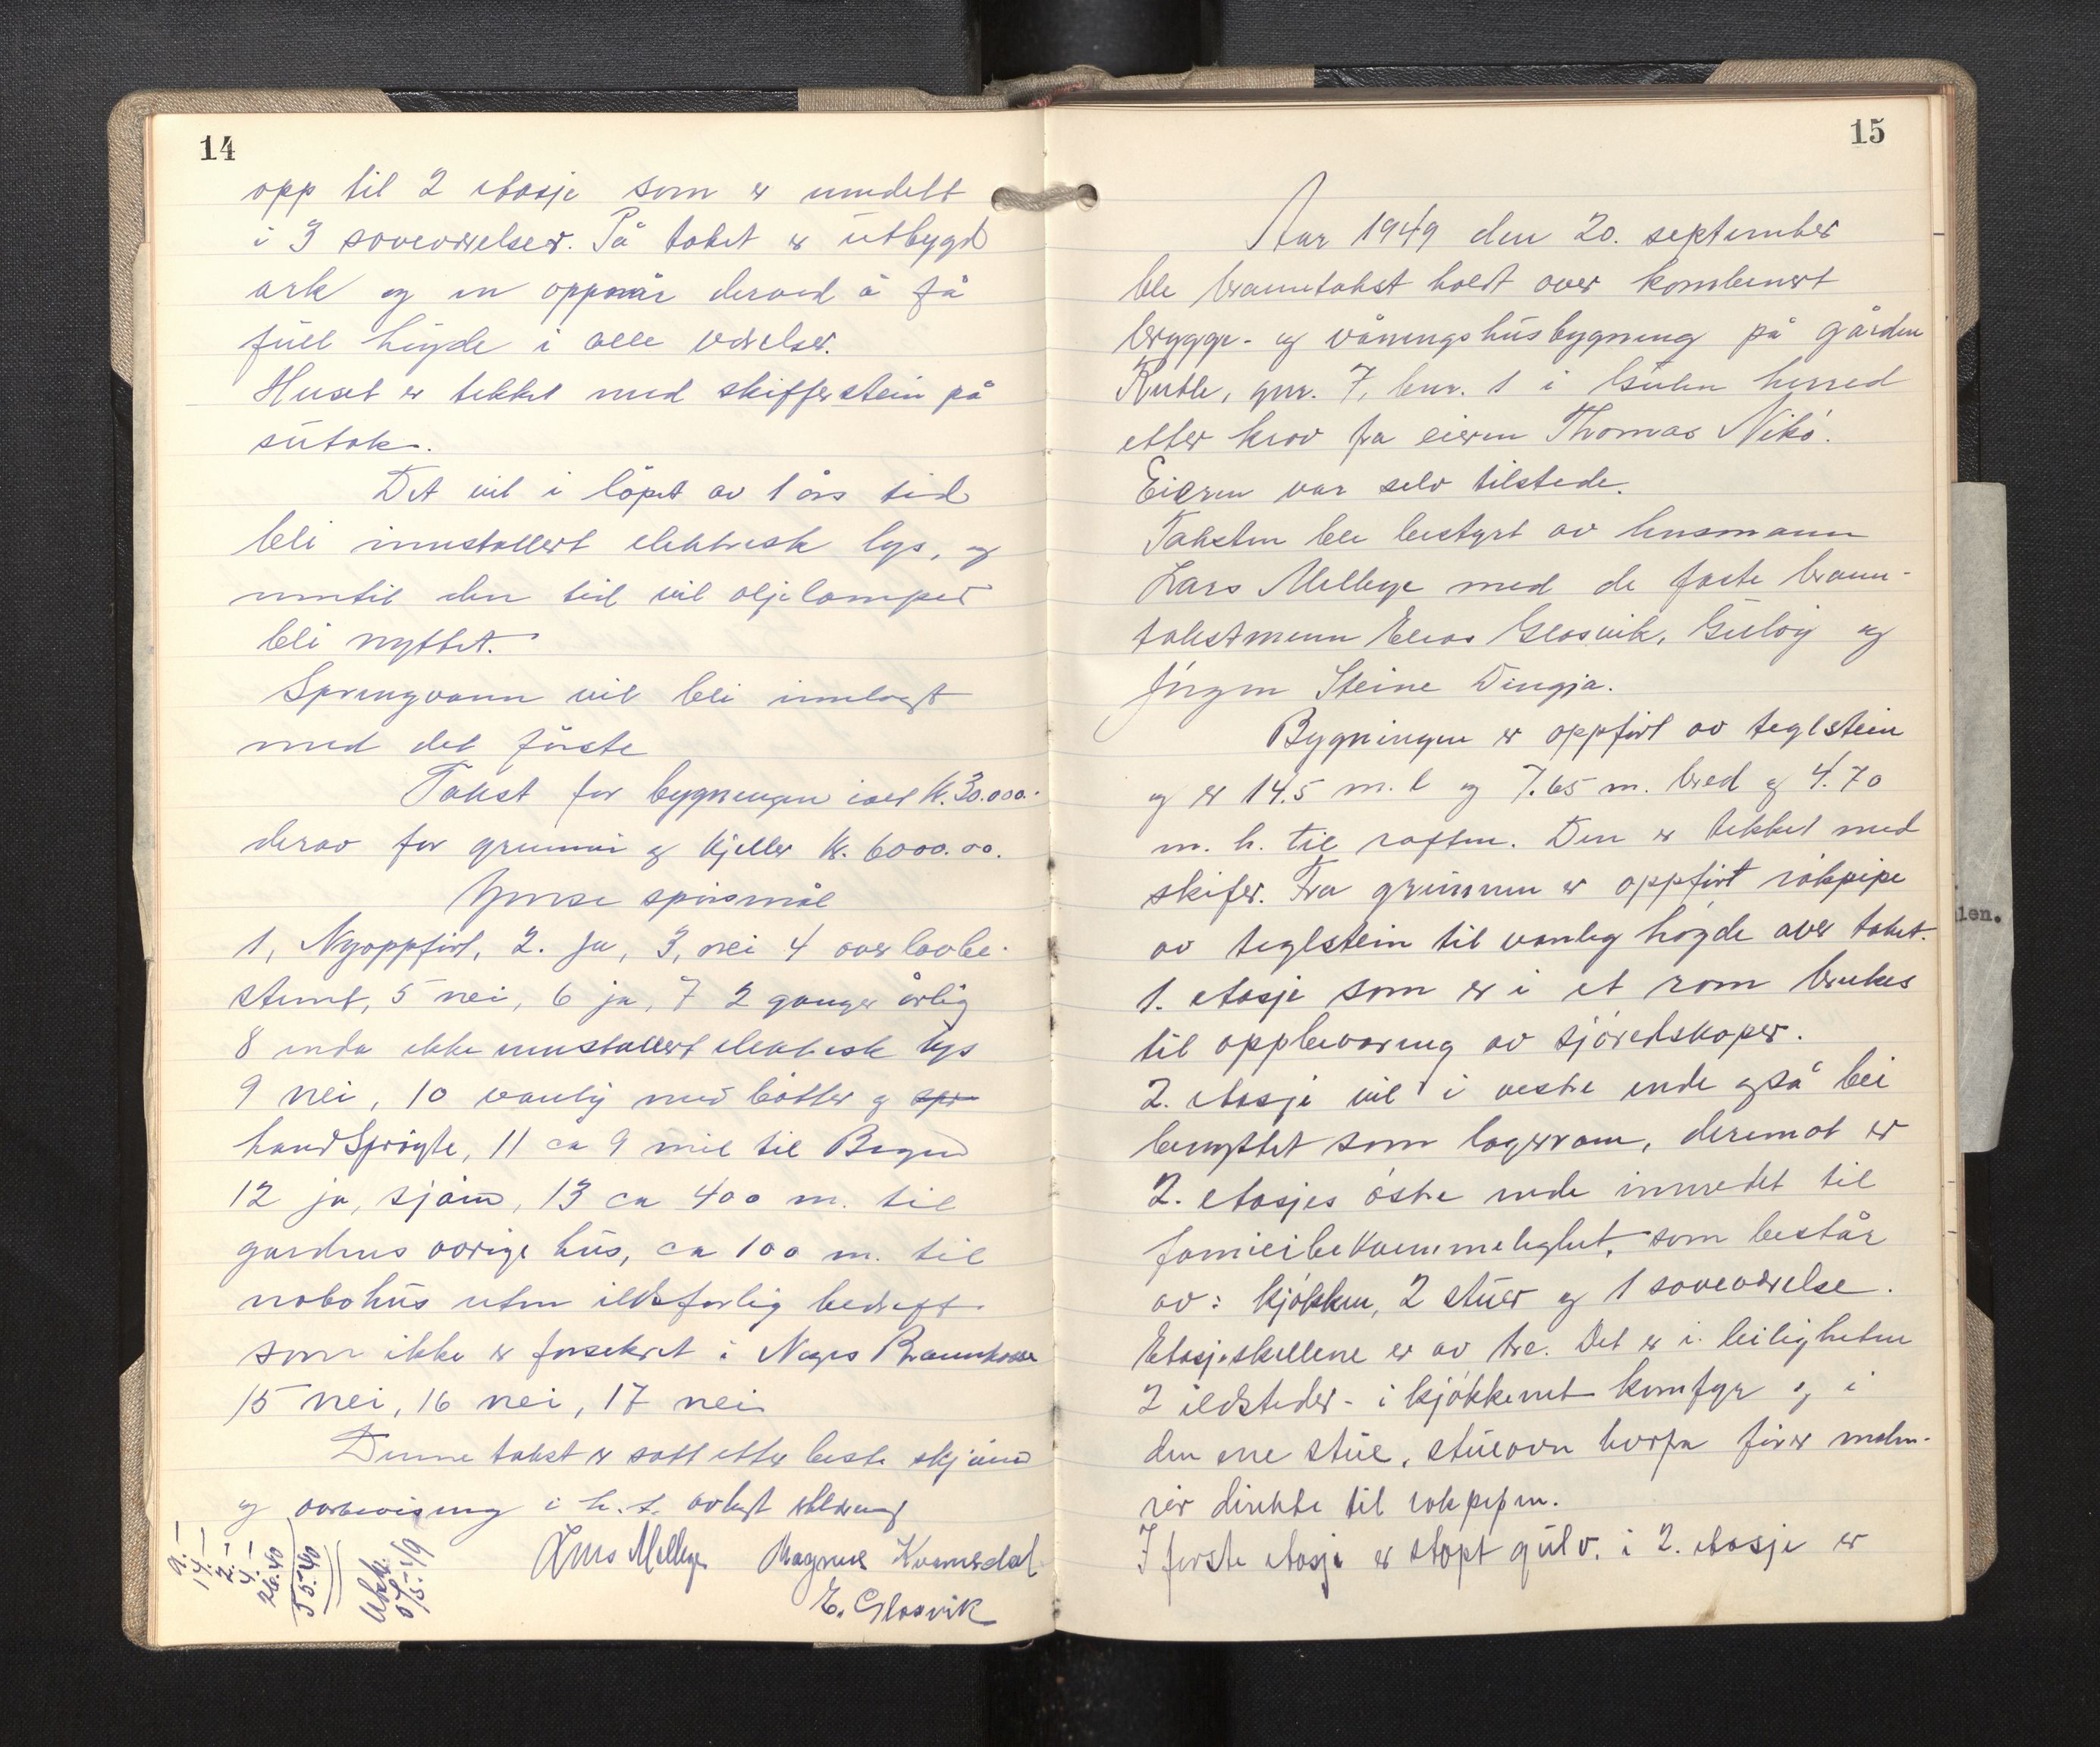 14
opp til 2 etasje som er inndelt
i 3 soveværelser. På taket er utbygd
ark og en oppnår derved å få
full høyde i alle værelser.
Huset er tekket med skifferstein på
sutak.
Det vil i løpet av 1 års tid
bli innstallert elektrisk lys, og
inntil den tid vil oljelamper
bli nyttet.
Springvann vil bli innlagt
med det første
Takst for bygningen ialt kr. 30.000.-
derav for grunnmur og kjeller kr. 6000.00.
Ymse spørsmål
1, Nyoppført, 2. ja, 3, nei 4 over lovbe-
stemt, 5 nei, 6 ja, 7 2 ganger årlig
8 enda ikke innstallert elektrisk lys
9 nei, 10 vanlig med bøtter og spr
handsprøyte, 11 ca 9 mil til Bergen
12 ja, sjøen, 13 ca 400 m. til
gardens øvrige hus, ca 100 m. til
nabohus uten ildsfarlig bedrift
som ikke er forsekret i Norges Brannkasse
15 nei, 16 nei, 17 nei
Denne takst er satt etter beste skjønn
og overbevisning i h. t. avlagt
Lars Mellege Magnus Kvamsdal
E. Glosvik
9.-
14.-
2.-
4.-
26.40
55.40
15
Aar 1949 den 20. september
ble branntakst holdt over kombinert
brygge- og våningshusbygning på gården
Rutle, gnr. 7, bnr. 1 i Gulen herred
etter krav fra eieren Thomas Nikø.
Eieren var selv tilstede.
Taksten ble bestyrt av lensmann
Lars Mellege med de faste brann-
takstmenn Elias Glosvik, Guløy og
Jørgen Steine Dingja.
Bygningen er oppført av teglstein
og er 14.5 m. l og 7.65 m. bred og 4.70
m. h. til raften. Den er tekket med
skifer. Fra grunnen er oppført rökpipe
av teglstein til vanlig høyde over taket.
1. etasje som er i et rom brukes
til oppbevaring av sjøredskaper.
2. etasje vil i vestre ende også bli
benyttet som lagerrom, derimot er
2. etasjes østre ende innredet til
familiebekvemmelighet, som består
av: kjøkken, 2 stuer og 1 soveværelse.
Etasjeskillene er av tre. Det er i leiligheten
2 ildsteder - i kjøkkenet komfyr og i
den ene stue, stueovn hvorfra fører malm-
rør direkte til rökpipen.
I første etasje er støpt gulv. i 2. etasje er
len.